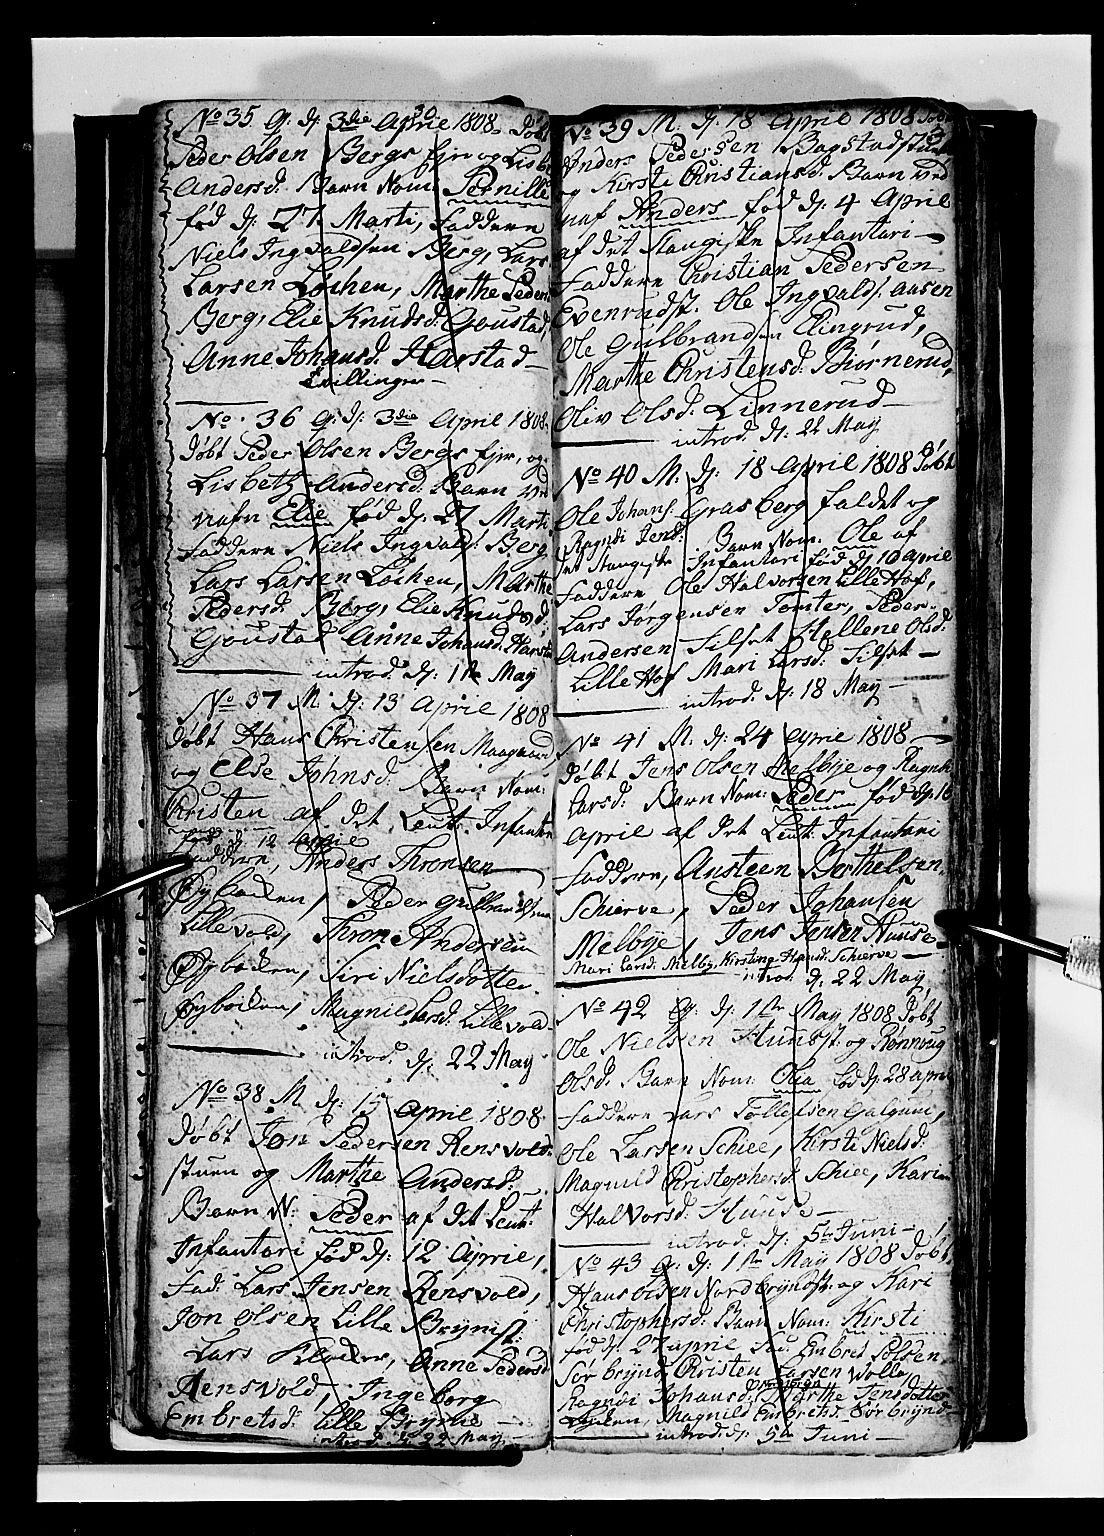 No 35 G. d. 3die April 1808 Døbt
Peder Olsen Bergs fier og Lisbet
Andersd: Barn Nom: Pernille
fød d: 27 Marti, Faddere
Niels Ingvaldsen Berg, Lars
Larsen Løchen, Marthe Peders
Berg, Elie Knudsd: Goustad,
Anne Johansd: Harstad
Tvillinger
No. 36 G: d: 3die April 1808
Døbt Peder Olsen Bergs fier, og
Lisbeth Andersd: Barn ved
nafn Elie fød d: 27 Marti
Faddere Niels Ingvalds: Berg
Lars Larsen Løchen, Marthe
Pedersd: Berg, Elie Knudsd:
Goustad Anne Johansd: Harstad
introd: d: 1te May
No 37 M. d: 13 April 1808
Døbt Hans Christensen
og Else Johnsd: Barn Nom:
Christen af det Leut: Infanteri
fød d 12 April
Faddere, Anders Thronsen
Øybakken, Peder Gulbrandsen
Lillevold, Thron Andersen
Øybakken, Siri Nielsdotter
Øybakken, Magnild Larsd: Lillevold
introd: d: 22 May
No 38 M d: April 1808
Døbt Jon Pedersen Rensvold
stuen og Marthe Andersd:
Barn N: Peder af det Leut:
Infantari fød d: 12 April,
Fad: Lars Jensen Rensvold,
Jon Olsen Lille Brynist:
Lars Anne Pedersd
Rensvold, Ingeborg
Embretsd: Lille Bryni
introd: d: 22 May
No 39 M. d: 18 April 1808 Døbt
Anders Pedersen Bagstadstuen
og Kirsti Christiansd: Barn ved
naf Anders fød d: 4 April
af det Stangiske Infantari
Faddere Christian Pedersen
Evenrudst. Ole Ingvalds: Aasen
Ole Gulbrandsen Elingrud,
Marthe Christensd: Biørnerud,
Oliv Olsd: Linnerud
introd: d: 22 May
No 40 M. d: 18 April 1808 Døbt
Ole Johans: Grasberg faldet og
Ragndi Jensd: Barn Nom: Ole af
det Stangiske Infantari fød d: 10 April
Faddere Ole Halvorsen Lille Hof,
Lars Jørgensen Tomter, Peder
Andersen Silset Hellene Olsd:
Lille Hof Mari Larsd: Silset
introd: d: 18 May
No 41 M. d: 24 April 1808
Døbt Jens Olsen Melbye og Ragnh
Larsd: Barn Nom: Peder fød d: 16
April af det Leut: Infantari
Faddere, Austeen Berthelsen
Schierve, Peder Johansen
Melbye, Jens Jensen Hunse
Mari Larsd: Melby, Kirstine Hansd: Schierve
introd: d: 22 May,
No 42 G: d: 1te May 1808 Døbt
Ole Nielsen Hunst og Rønnoug
Olsd: Barn Nom: Olia fød d: 28 April
Faddere Lars Tollefsen Galguni,
Ole Larsen Schiee, Kirsti Nielsd:
Magnild Christophersd: Schiee, Karin
Halvorsd: Hunde
introd: d: 5te Juni
No 43 G: d: 1te May 1808 Døbt
Hans Olsen Nordbryndst: og Kari
Christophersd: Barn Nom: Kirsti
fød d: 27 April Embret Polsen
Sør brynd Christen Larsen Wolla,
Ragndi Johansd: Marthe Jensdotter
Magnild Embretsd: Sør brynd
introd: d: 5te Juni